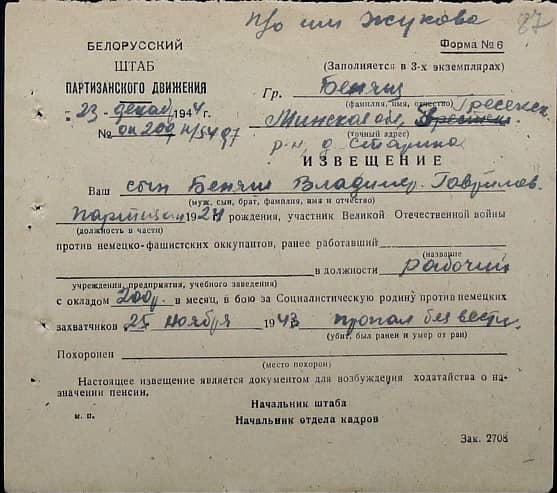 п/о им Жукова 87
БЕЛОРУССКИЙ
ШТАБ
ПАРТИЗАНСКОГО ДВИЖЕНИЯ
„23“ декаб 1944 г.
№ оп200
Форма № 6
(Заполняется в 3-х экземплярах)
Гр. Бенящ
(фамилия, имя, отчество)
Минская обл,
(точный адрес)
р-н, д. Старина
ИЗВЕЩЕНИЕ
Ваш сын Бенящ Владимир. Гаврилов.
(муж, сын, брат, фамилия, имя и отчество)
партизан 1924 рождения, участник Великой Отечественной войны
(должность в части)
против немецко-фашистских оккупантов, ранее работавший
(название
в должности рабочий
учреждения, предприятия, учебного заведения)
с окладом 200р. в месяц, в бою за Социалистическую родину против немецких
захватчиков 25 ноября 1943 пропал без вести.
(убит, был ранен и умер от ран)
Похоронен
(место похорон)
Настоящее извещение является документом для возбуждения ходатайства о на-
значении пенсии.
Начальник штаба
м. п. Начальник отдела кадров
Зак. 2708